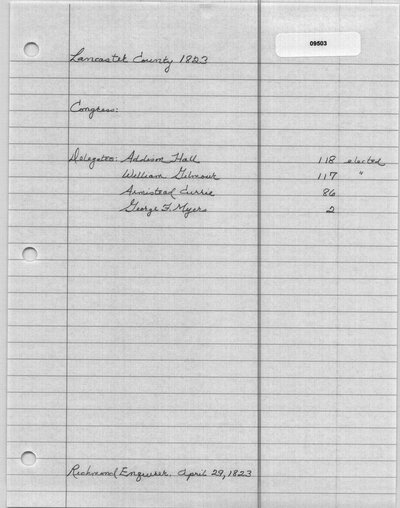 09503
Lancaster County 1823
Congress:
Delegates: Addison Hall 118 elected
William Gilmour 117 "
Armistead Currie 86
George F. Myers 2
Richmond Enquirer, April 29, 1823